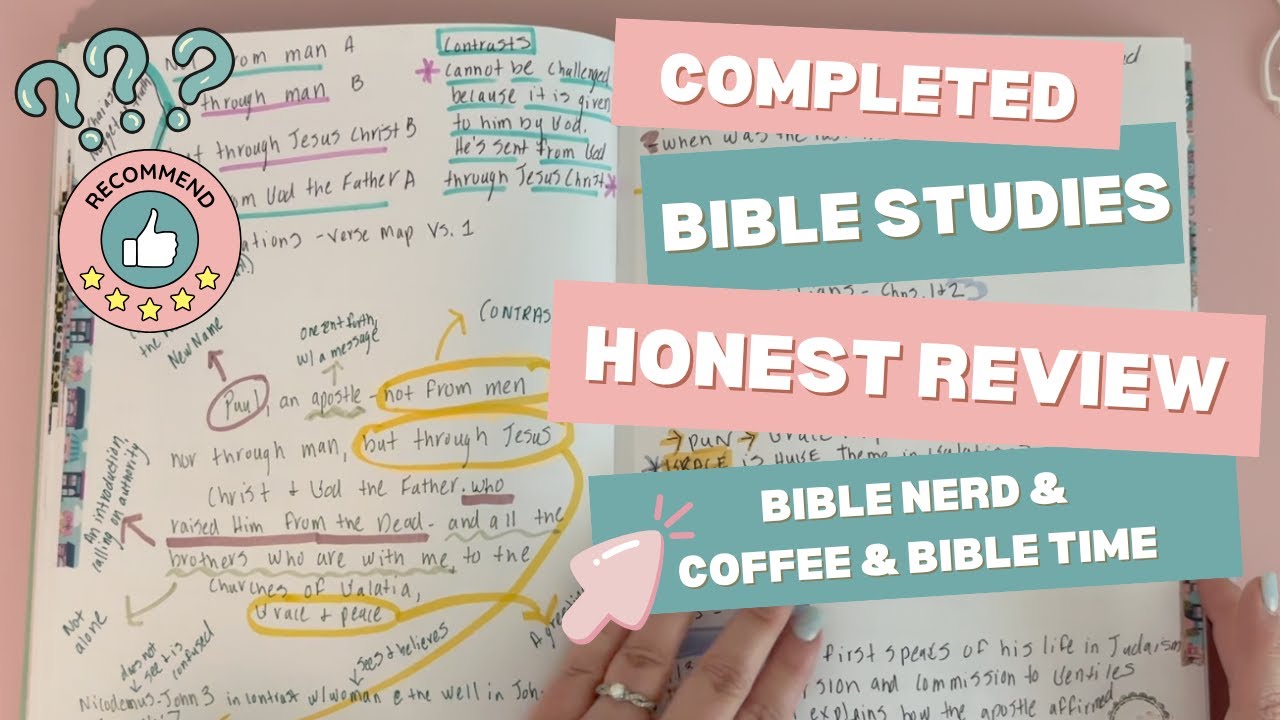 from man A
through man B
through Jesus Christ B
om God the Father A
Contrasts
cannot be challenged
because it is given
to him by God.
He's sent from God
through Jesus Christ
RECOMMEND
ations - verse map vs. 1
New Name
one sent forth,
w/ a message
CONTRAS
Paul, an apostle - not from men
nor through man, but through Jesus
Christ + God the Father. who
raised Him from the Dead - and all the
brothers who are with me, to the
churches of Galatia,
Grace + peace
An introduction,
calling on authority
Not
alone
does not
see + is
confused
sees + believes
Nicodemus - John 3 in contrast w/ woman @ the well in John
COMPLETED
BIBLE STUDIES
HONEST REVIEW
BIBLE NERD &
COFFEE & BIBLE TIME
- when was the
Chps. 1+2
GRACE is HUGE theme in
first speaks of his life in Judaism
rsion and commission to Gentiles
explains how the apostle affirmed